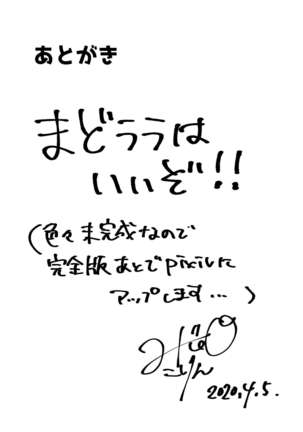 あとがき
まどううは
いいぞ!!
(色々未完成なので
完全版あとでpixivに
アップします…)
2020.4.5.